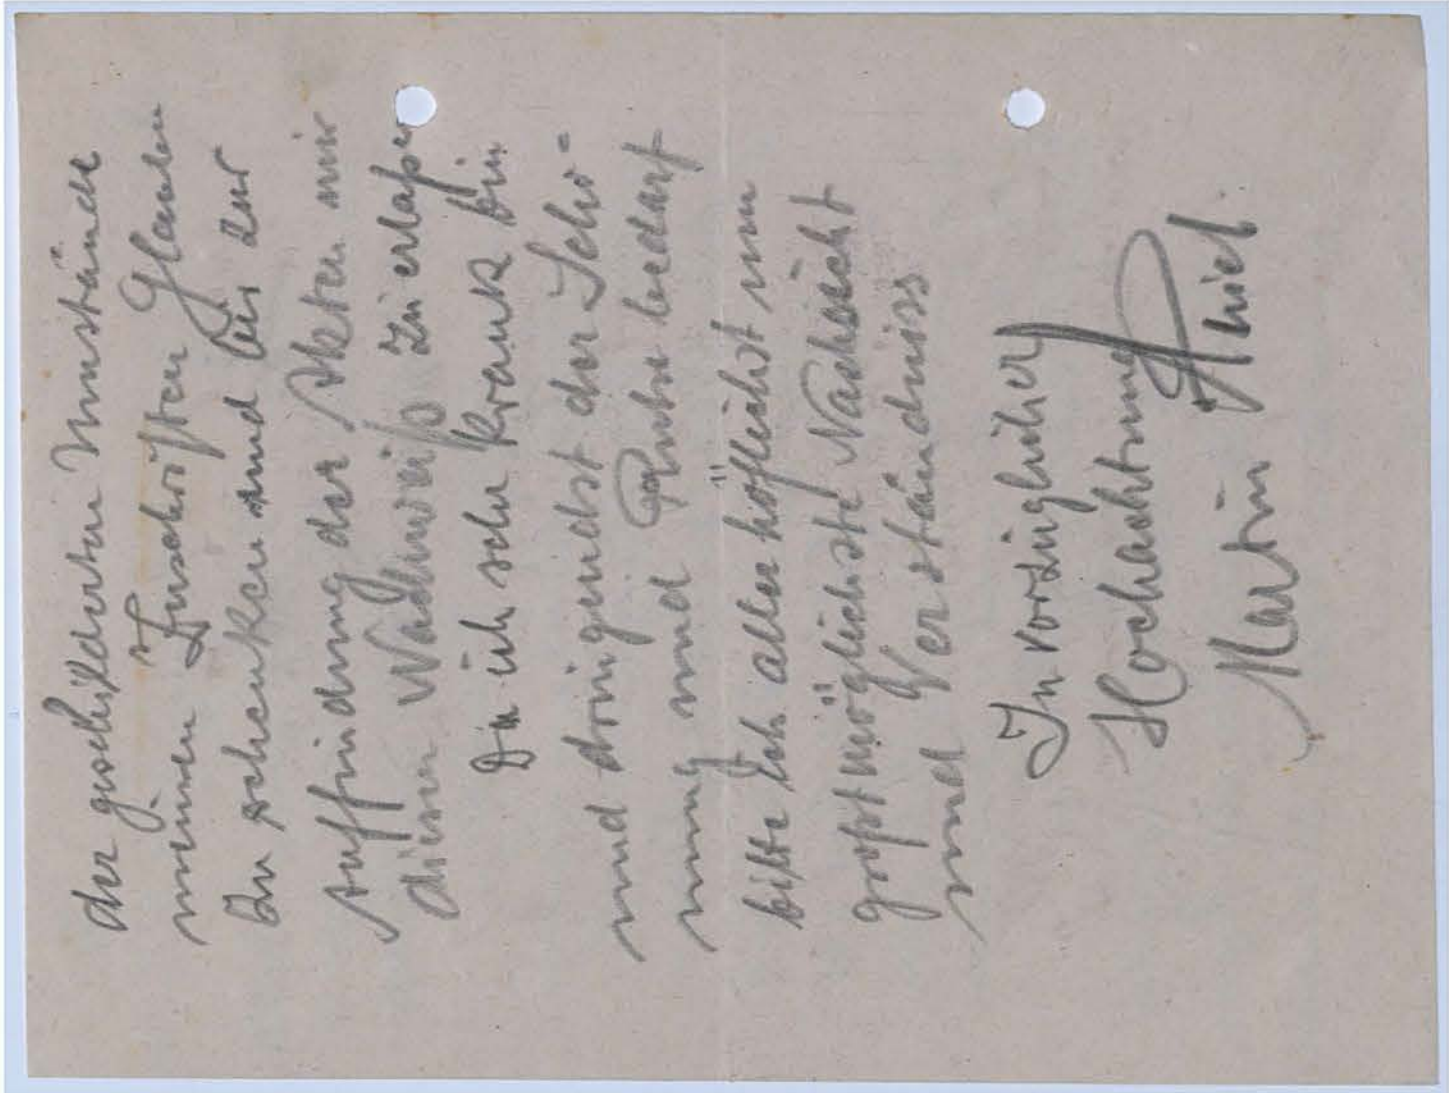 der geschilderten Umstände
meinen Zuschriften Glauben
zu schenken und bis zur
Auffindung der Akten mir
diesen Nachweiß zu erlaßen
Da ich sehr krank bin
und dringendst der Scho=
nung und Ruhe bedarf
bitte ich aller höflichst um
großtmöglichste Nachsicht
und Verständniss
In vorzüglicher
Hochachtung
Martin